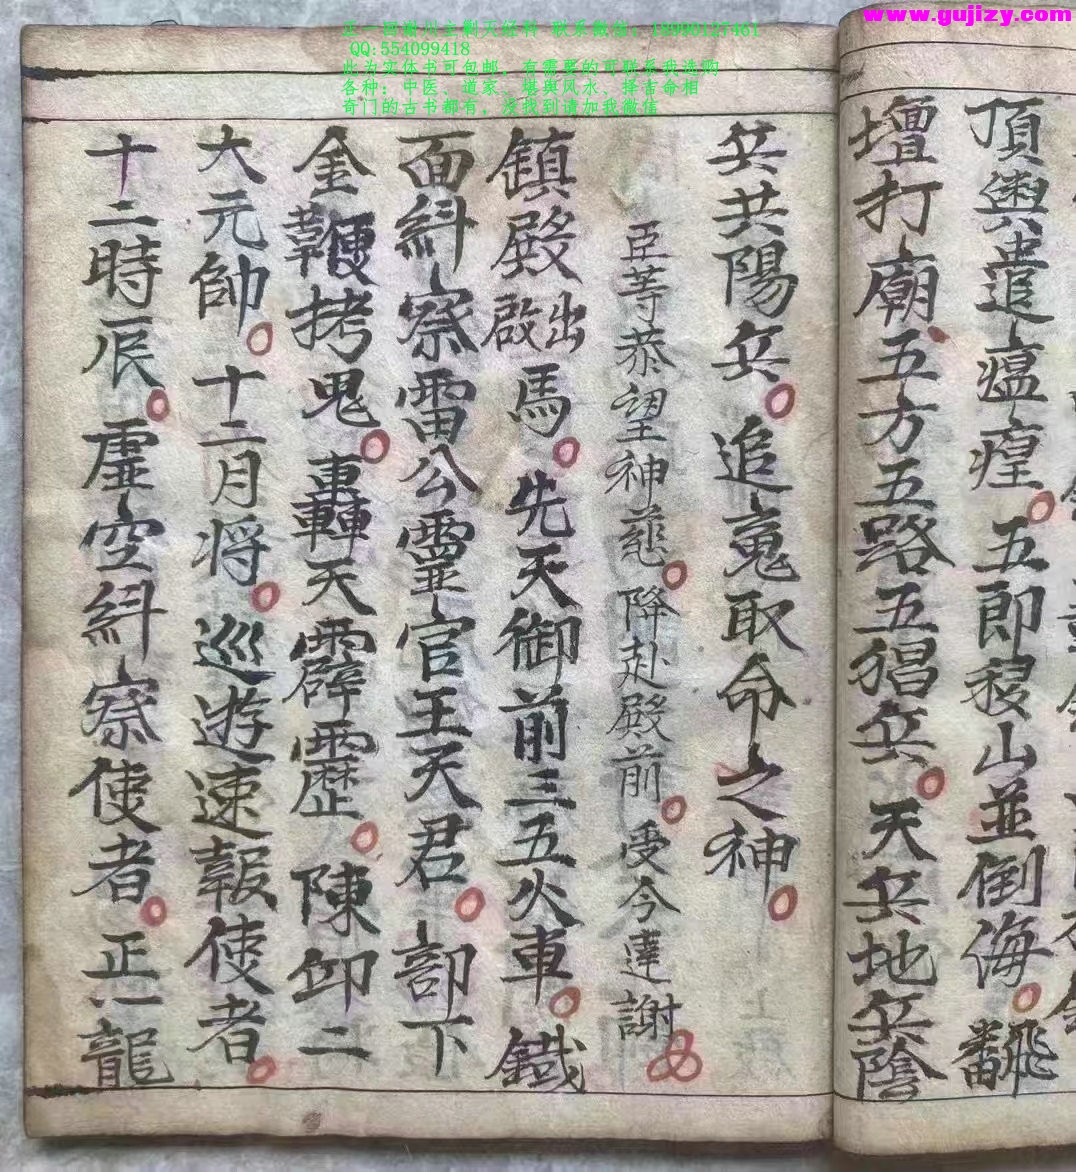 www.gujizy.com
QQ:554099418
此为实体书可包邮，有需要的可联系我选购
各种：中医、道家、堪舆风水、择吉命相
奇门的古书都有，没找到请加我微信
頂輿遣瘟㾮五郎䅋山並倒海飜
壇打廟五方五路五猖兵天兵地兵陰
兵共陽兵追䰟取命之神
臣等恭望神慈降赴殿前受今蓮謝
鎮殿啟出馬先天御前三五火車鐵
面糾察雷公靈官王天君部下
金鞭拷鬼轟天霹靂陳卬二
大元帥十二月将巡遊速報使者
十二時辰虛空糾察使者正一龍